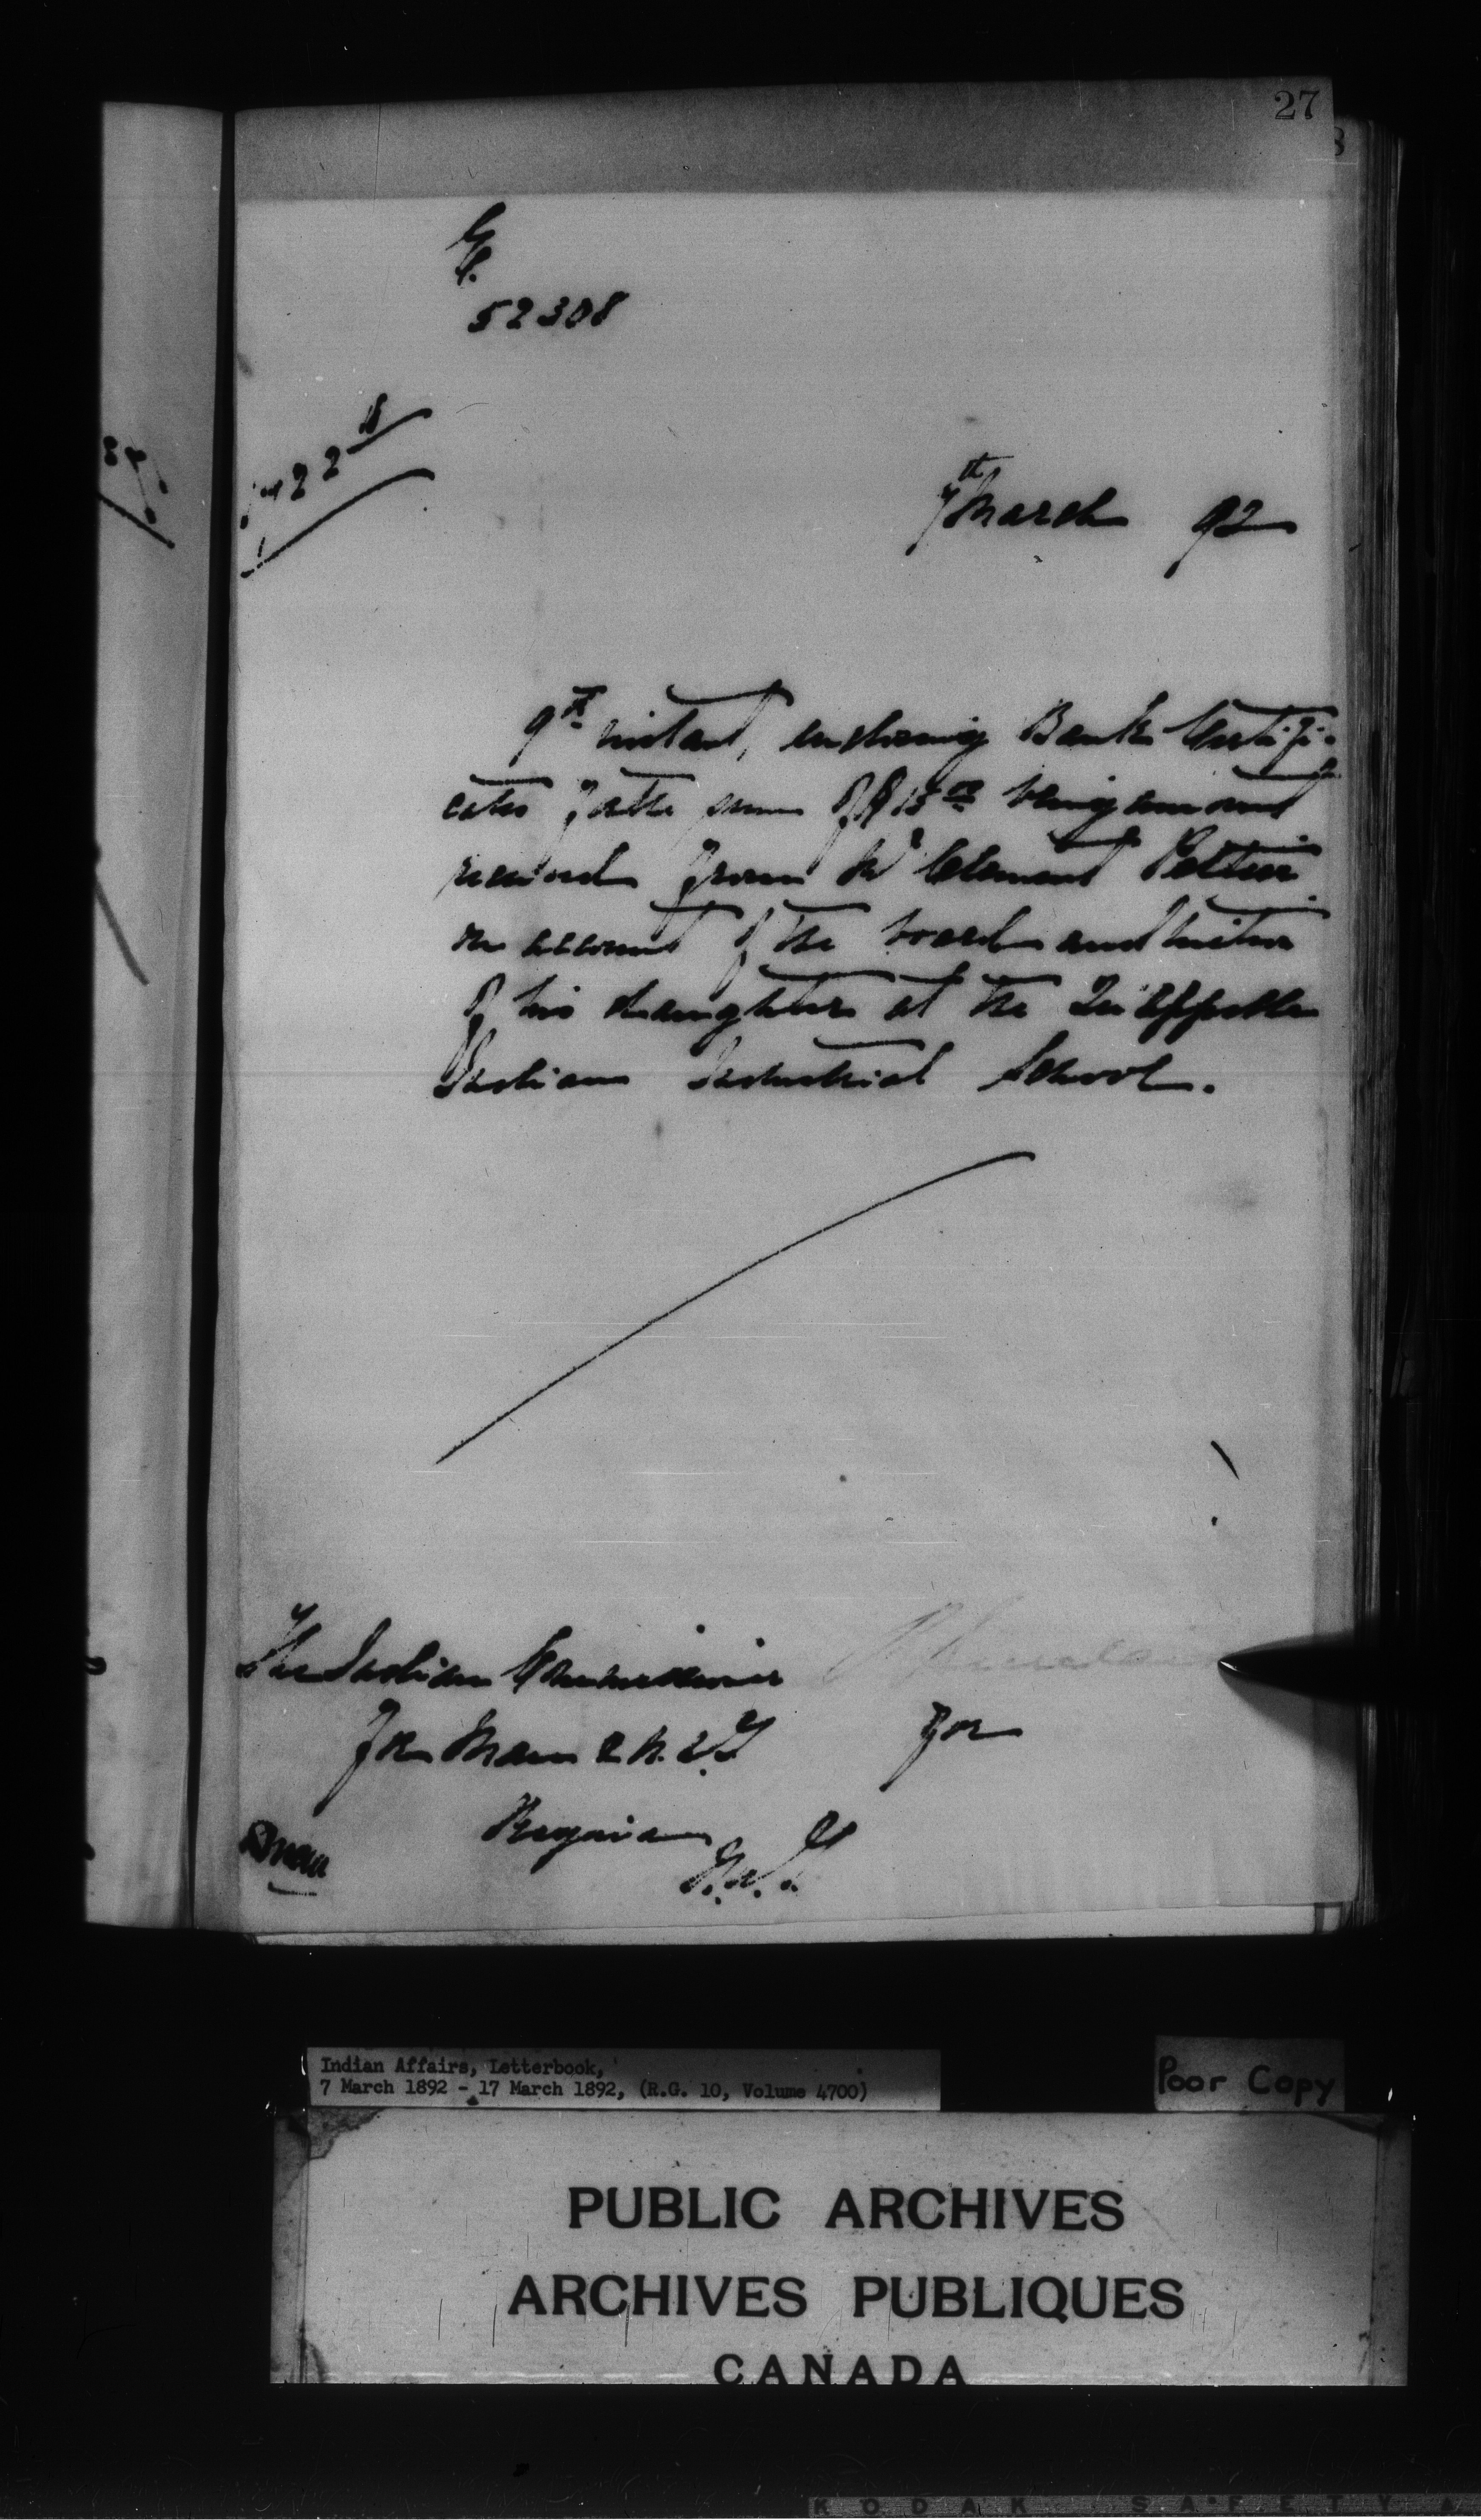 27
52308
7th March 92
9th instant, enclosing Bank Certifi-
cates for the sum of $18 00 being amount
received from Mr Clement Peltier
on account of the board and tuition
of his daughter at the Qu'Appelle
Indian Industrial School.
The Indian Commissioner
for Man & N.W.T
for
Regina
N.W.T.
Indian Affairs, Letterbook,
7 March 1892 - 17 March 1892, (R.G. 10, Volume 4700)
Poor Copy
PUBLIC ARCHIVES
ARCHIVES PUBLIQUES
CANADA
KODAK SAFETY